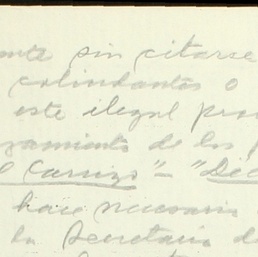 mente sin citarse
colindantes o
este ilegal pro
zamiento de los
l Carrizo"- "Dic
hace necesaria
la Secretaria de